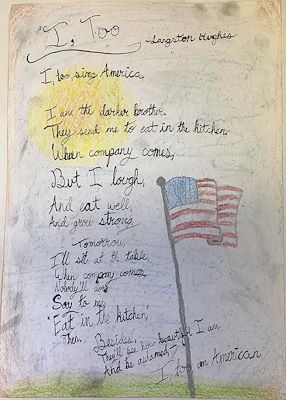 I, Too
-Langston Hughes
I, too, sing America.
I am the darker brother.
They send me to eat in the kitchen
When company comes,
But I laugh,
And eat well,
And grow strong.
Tomorrow,
I'll sit at the table,
When company comes,
Nobody'll dare
Say to me,
"Eat in the kitchen,"
Then.
Besides,
They'll see how beautiful I am
And be ashamed-
I, too, am American